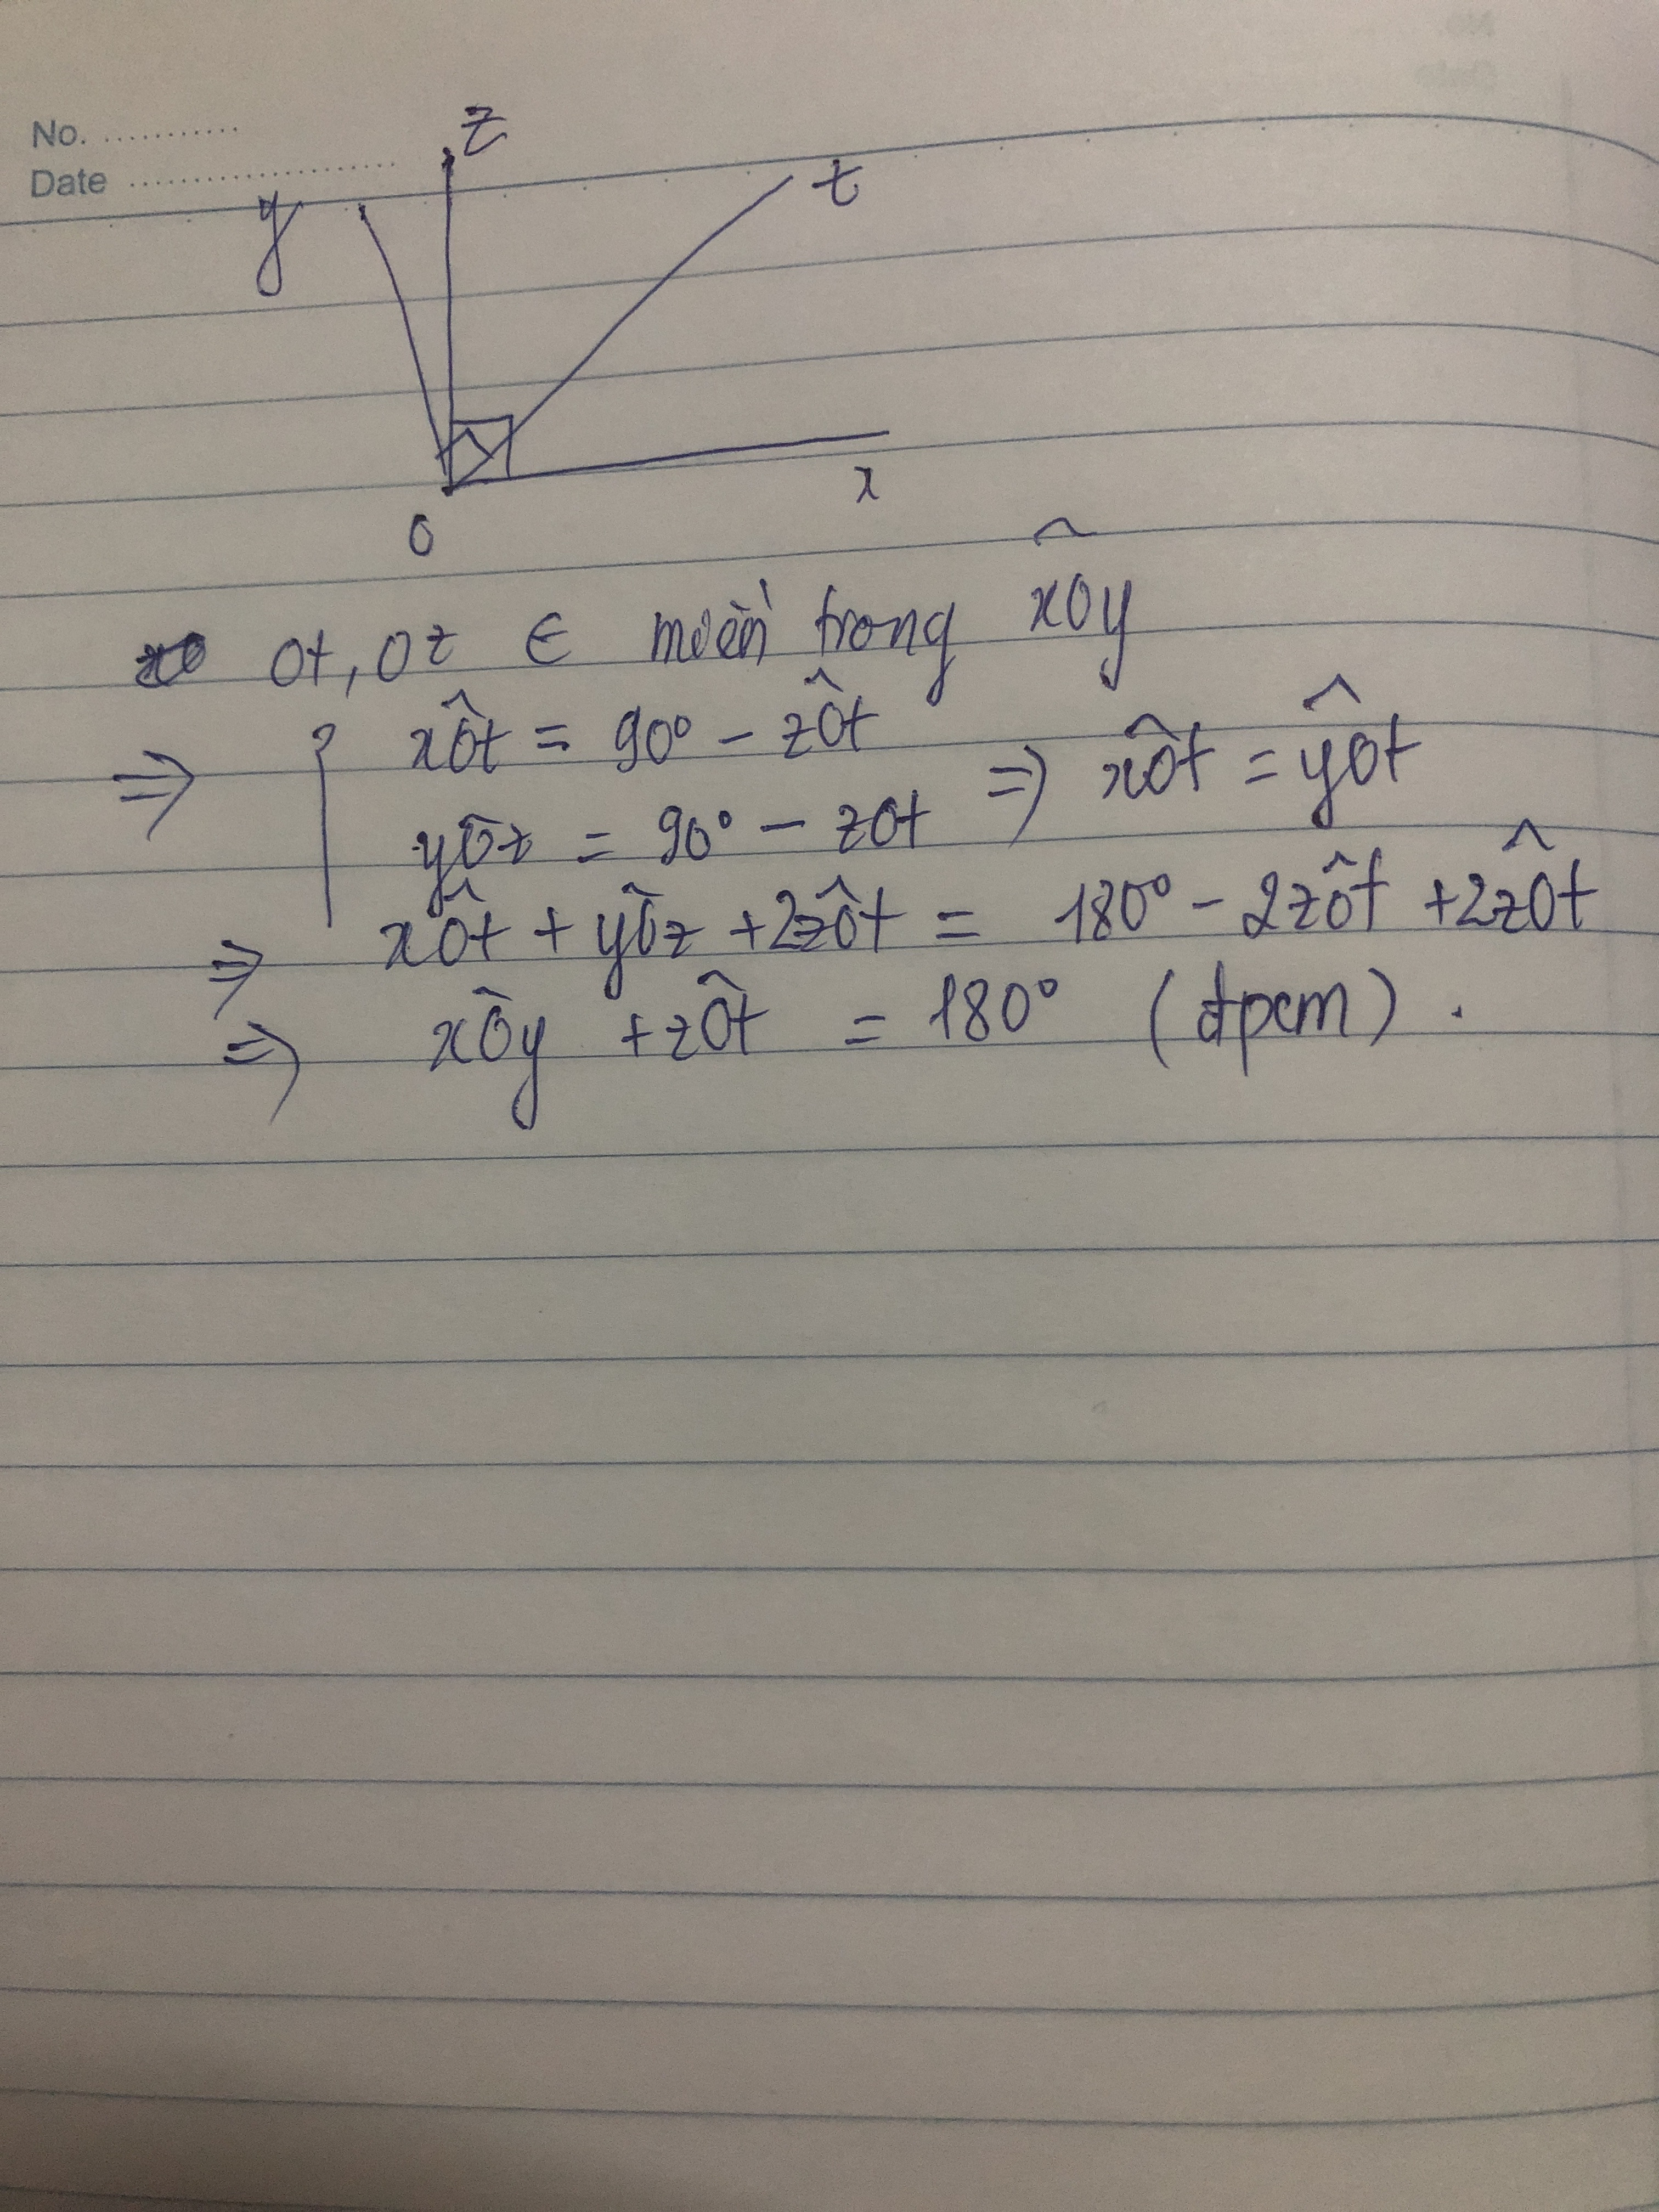 No. ...........
Date ....................
z
y
t
x
O
Ot, Oz ∈ miền trong xOy^
⇒ { xÔt = 90° - zÔt
yÔz = 90° - zOt ⇒ xÔt = yÔt
⇒ xÔt + yÔz + 2zÔt = 180° - 2zÔt + 2zÔt
⇒ xÔy + zÔt = 180° (đpcm).